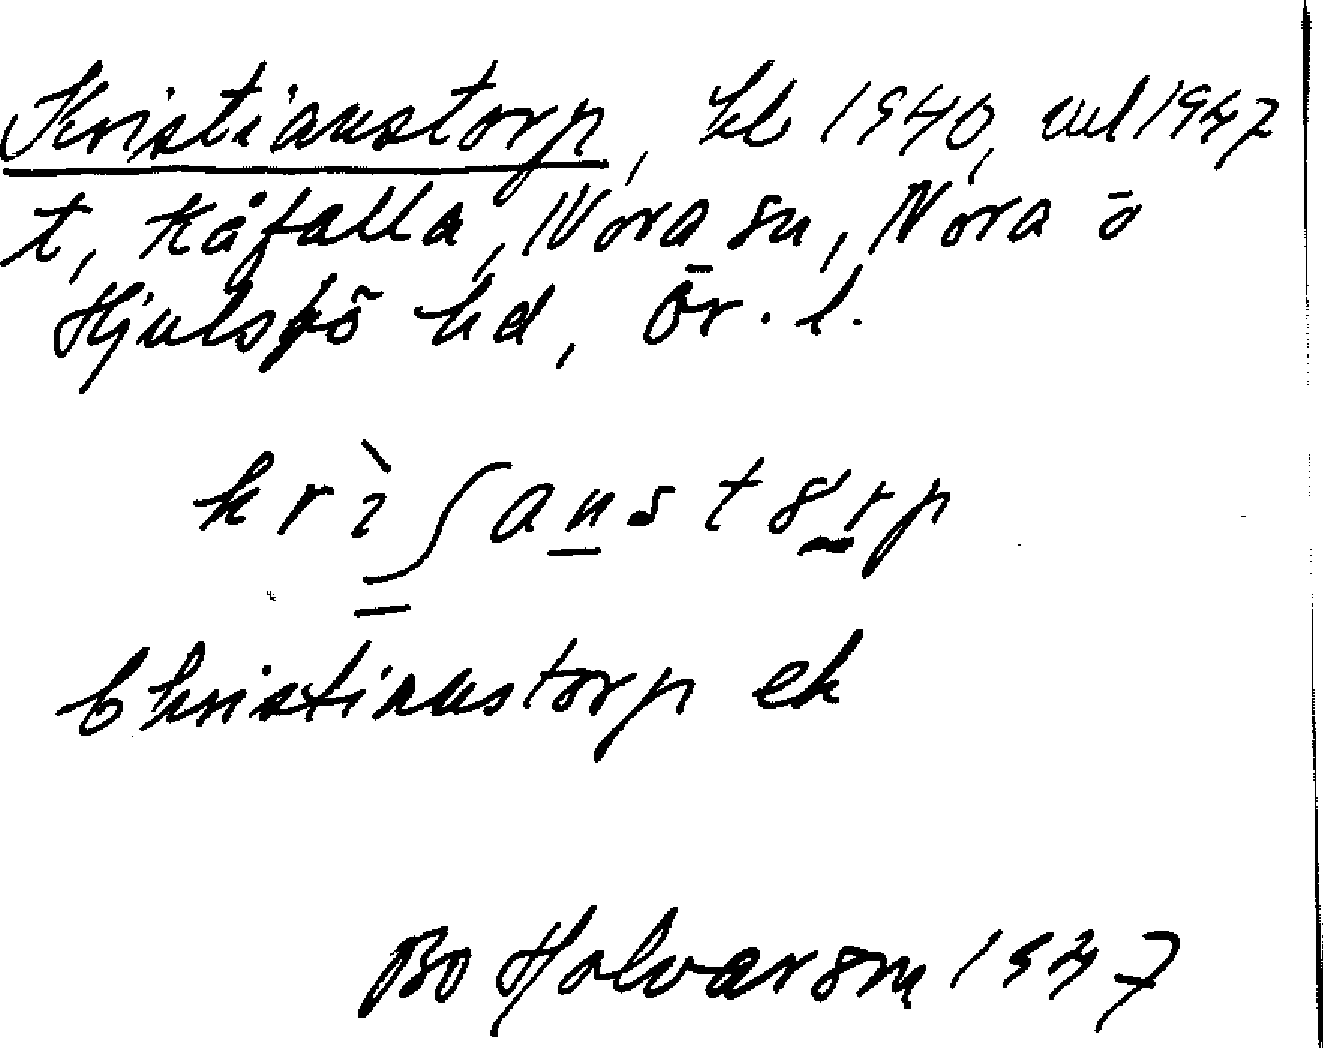 Kristianstorp, kl 1940, uel 1947
t, Kåfalla, Nora sn, Nora ō
Hjulsjö hd, Ör. l.
krìʃanstȣrp
Christianstorp ek
Bo Holvarson 1947